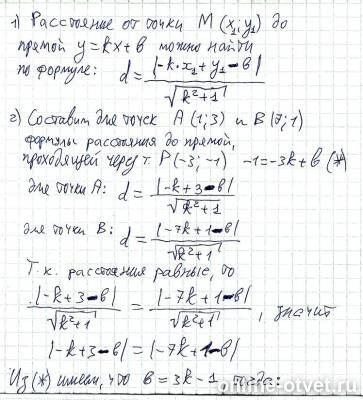 1) Расстояние от точки M(x₁; y₁) до
прямой y=kx+в можно найти
по формуле: d = |-k·x₁+y₁-в| / √(k²+1)
2) Составим для точек A(1;3) и B(7;1)
формулы расстояния до прямой,
проходящей через т. P(-3;-1) -1=-3k+в (*)
для точки A: d = |-k+3-в| / √(k²+1)
для точки B: d = |-7k+1-в| / √(k²+1)
Т.к. расстояния равные, то
|-k+3-в| / √(k²+1) = |-7k+1-в| / √(k²+1), значит
|-k+3-в| = |-7k+1-в|
Из (*) имеем, что в=3k-1, тогда:
online-otvet.ru